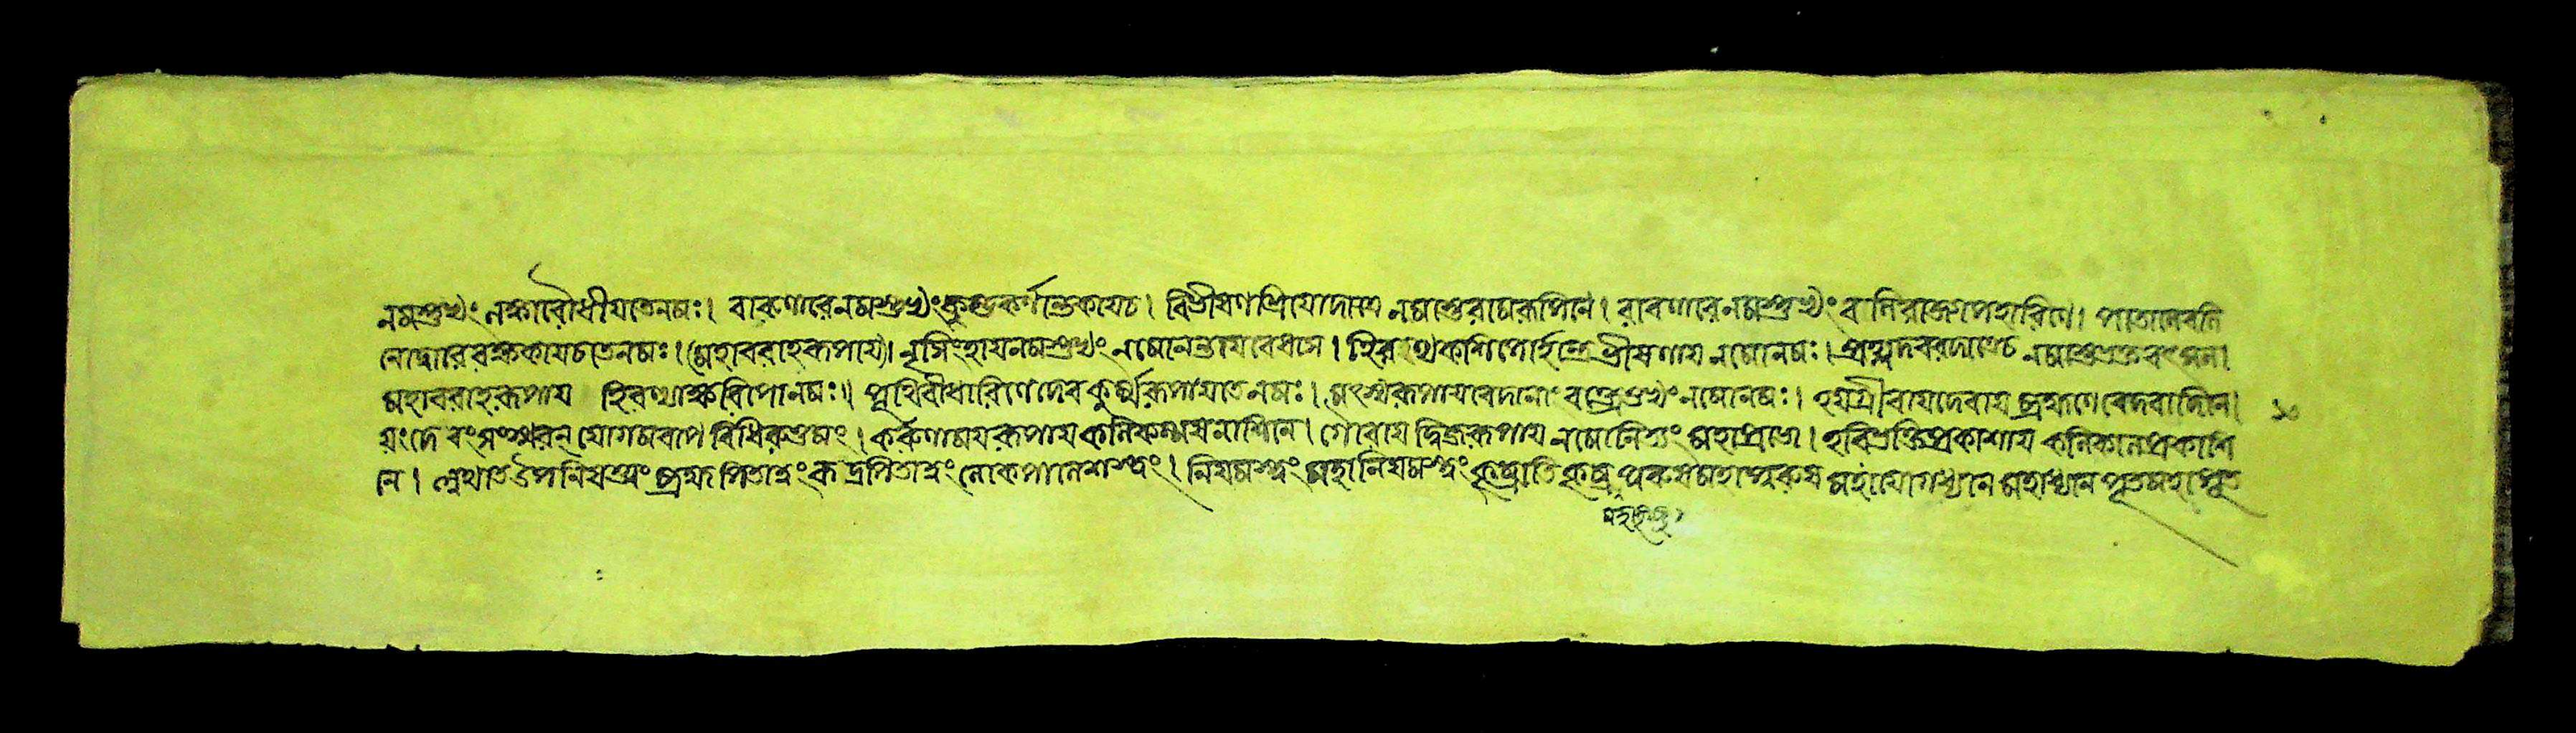 নমস্তুভ্যং লঙ্কারৌধীয়তেনমঃ। বারণারেনমস্তুভ্যংকুম্ভকর্ণান্তকায়চ। বিভীষণপ্রিয়োদাসে নমোস্তুরামরূপিনে। রাবণারেনমস্তুভ্যং বলিরাজ্যাপহারিণে। পাতালেবলি
নোদ্বারেরক্ষকায়চতেনমঃ। (মহাবরাহরূপায়)। নৃসিংহায়নমস্তুভ্যং নমোনন্তায়বেধসে। হিরণ্যকশিপোর্হন্ত্রেভীষণায় নমোনমঃ। প্রহ্লাদবরদাত্রেচ নমোস্তুভক্তবৎসল।
মহাবরাহরূপায় হিরণ্যাক্ষরিপোনমঃ॥ পৃথিবীধারিণেদেব কুর্ম্মরূপায়তেনমঃ। মৎস্যরূপায়বেদানাং বক্ত্রেতুভ্যংনমোনমঃ। হয়গ্রীবায়দেবায় ব্রহ্মণেবেদবাদিনে। ১০
য়ংদেবংসংস্মরন্ যোগমবাপ বিধিরুত্তমং। করুণাময়রূপায় কলিকল্মষনাশিনে। গৌরায় দ্বিজরূপায় নমোনিত্যং মহাপ্রভো। হরিভক্তিপ্রকাশায় কলিকালপ্রকাশি
নে। ব্রহ্ম পিতামহং রুদ্রপিতামহং লোকপালেশ্বরং। মহাপুরুষ মহাযোগধ্যান মহাধ্যান পূতমহাপূত